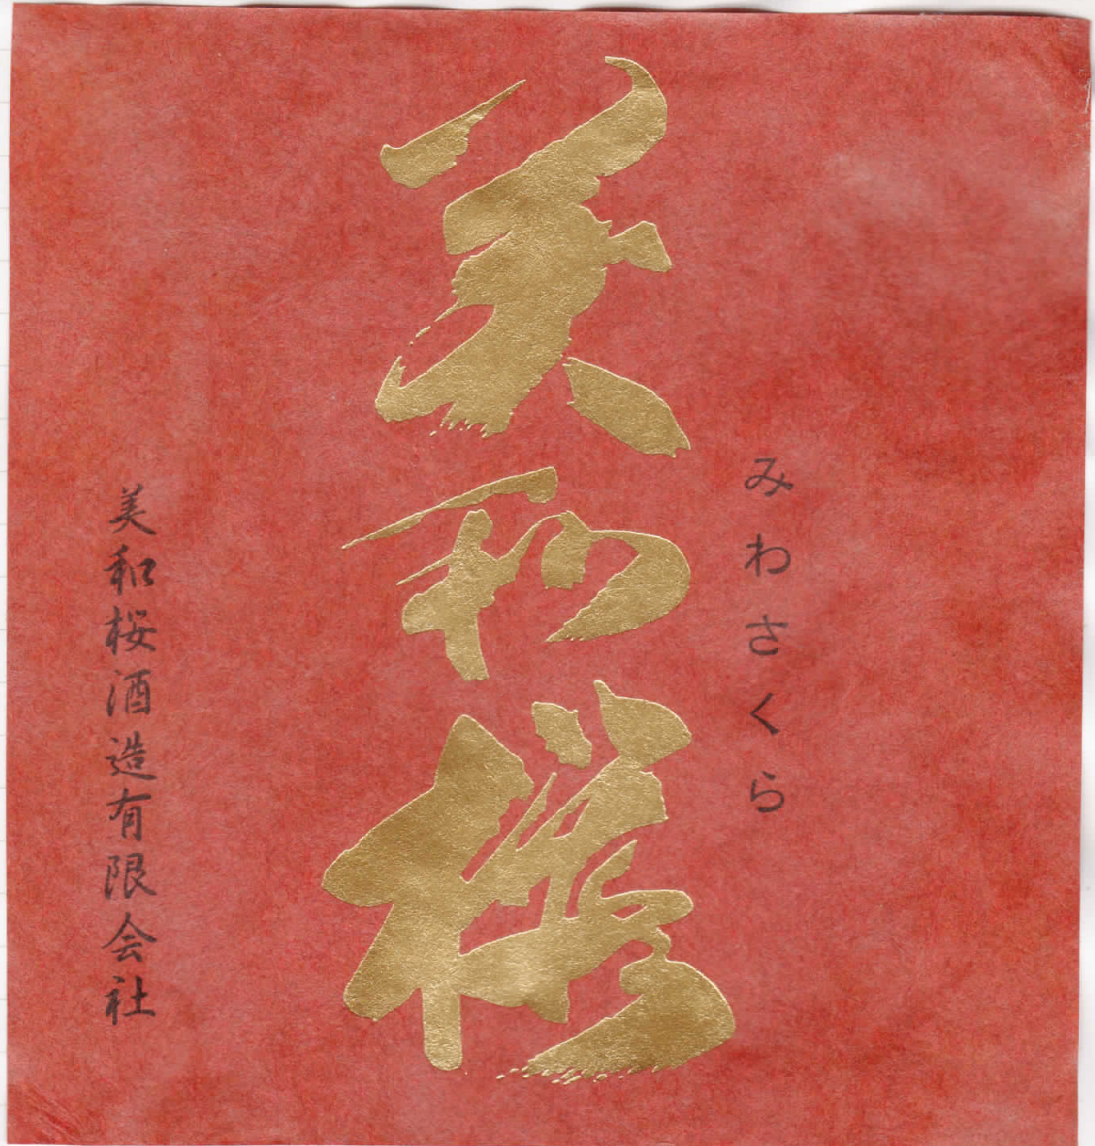 みわさくら
美和桜
美和桜酒造有限会社